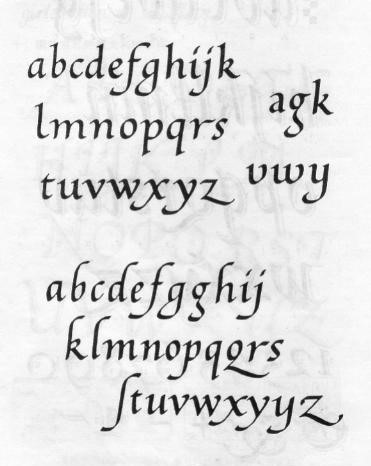 abcdefghijk
lmnopqrs
tuvwxyz
agk
vwy
abcdefgghij
klmnopqqrs
ſtuvwxyyz